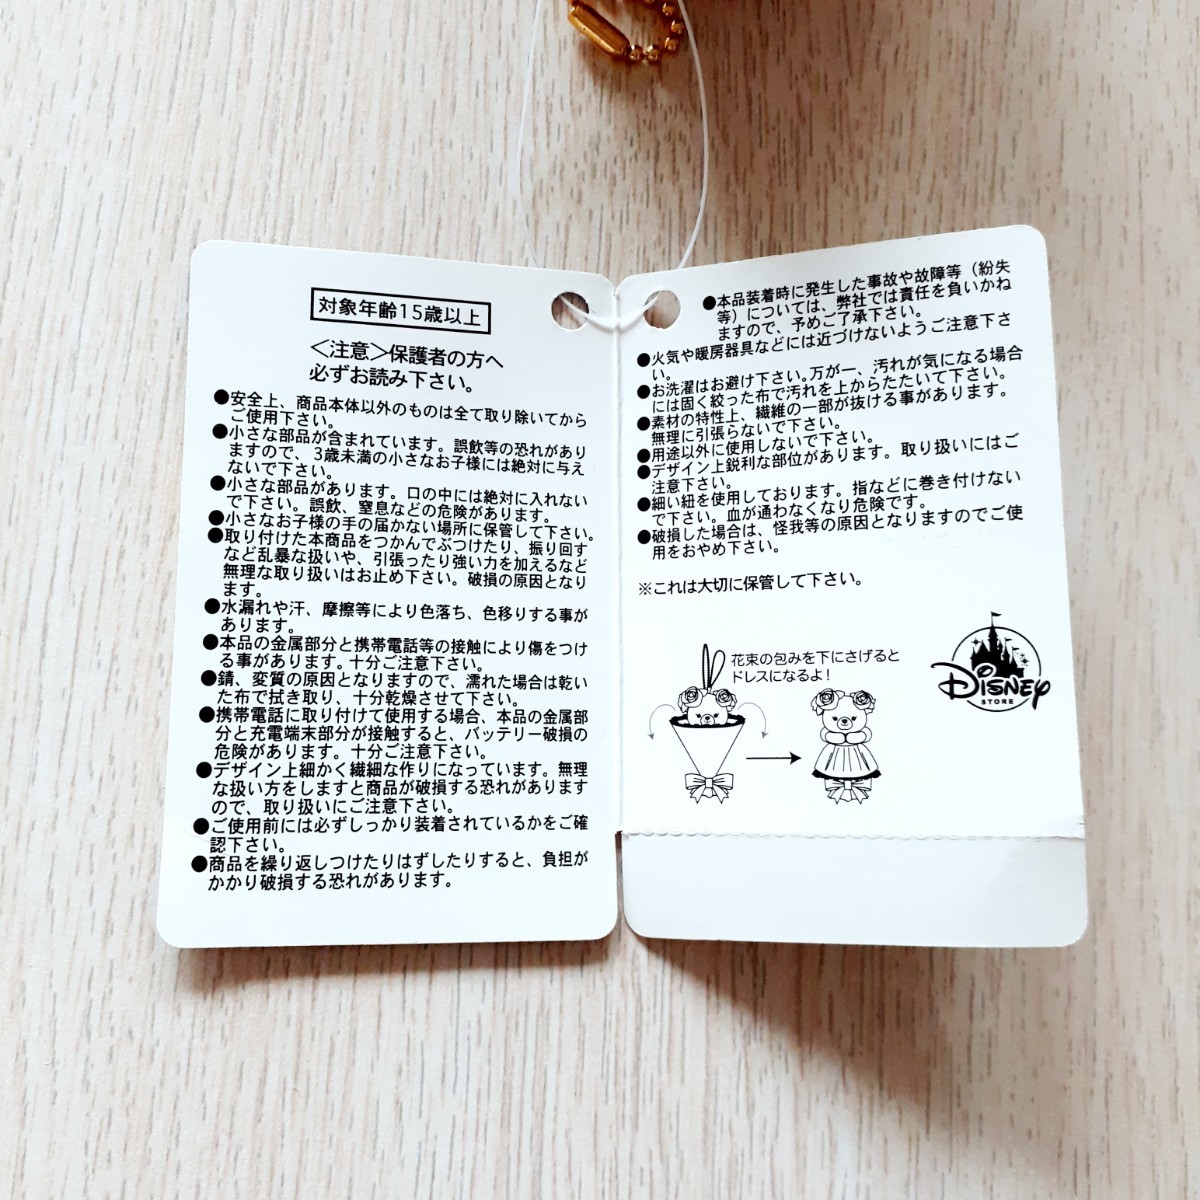 対象年齢15歳以上
＜注意＞保護者の方へ
必ずお読み下さい。
●安全上、商品本体以外のものは全て取り除いてから
ご使用下さい。
●小さな部品が含まれています。誤飲等の恐れがあり
ますので、3歳未満の小さなお子様には絶対に与え
ないで下さい。
●小さな部品があります。口の中には絶対に入れない
で下さい。誤飲、窒息などの危険があります。
●小さなお子様の手の届かない場所に保管して下さい。
●取り付けた本商品をつかんでぶつけたり、振り回す
など乱暴な扱いや、引張ったり強い力を加えるなど
無理な取り扱いはお止め下さい。破損の原因となり
ます。
●水漏れや汗、摩擦等により色落ち、色移りする事が
あります。
●本品の金属部分と携帯電話等の接触により傷をつけ
る事があります。十分ご注意下さい。
●錆、変質の原因となりますので、濡れた場合は乾い
た布で拭き取り、十分乾燥させて下さい。
●携帯電話に取り付けて使用する場合、本品の金属部
分と充電端末部分が接触すると、バッテリー破損の
危険があります。十分ご注意下さい。
●デザイン上細かく繊細な作りになっています。無理
な扱い方をしますと商品が破損する恐れがあります
ので、取り扱いにご注意下さい。
●ご使用前には必ずしっかり装着されているかをご確
認下さい。
●商品を繰り返しつけたりはずしたりすると、負担が
かかり破損する恐れがあります。
●本品装着時に発生した事故や故障等（紛失
等）については、弊社では責任を負いかね
ますので、予めご了承下さい。
●火気や暖房器具などには近づけないようご注意下さ
い。
●お洗濯はお避け下さい。万が一、汚れが気になる場合
には固く絞った布で汚れを上からたたいて下さい。
●素材の特性上、繊維の一部が抜ける事があります。
無理に引張らないで下さい。
●用途以外に使用しないで下さい。
●デザイン上鋭利な部位があります。取り扱いにはご
注意下さい。
●細い紐を使用しております。指などに巻き付けない
で下さい。血が通わなくなり危険です。
●破損した場合は、怪我等の原因となりますのでご使
用をおやめ下さい。
※これは大切に保管して下さい。
花束の包みを下にさげると
ドレスになるよ！
Disney
STORE